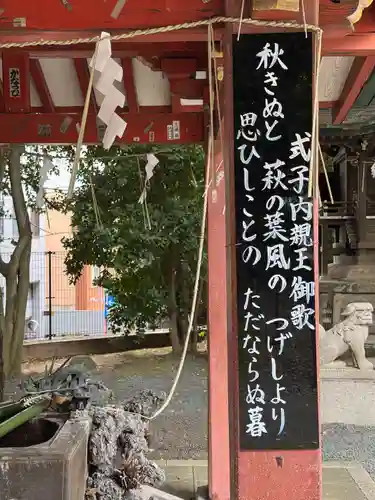 式子内親王御歌
秋きぬと 萩の葉風の つげしより
思ひしことの ただならぬ暮